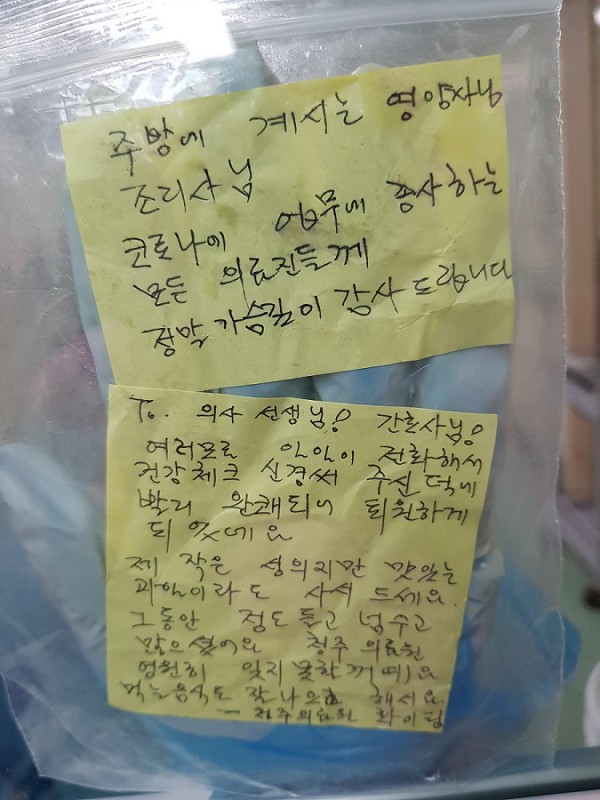 주방에 계시는 영양사님
조리사님
코로나에 업무에 종사하는
모든 의료진들께
정말 가슴깊이 감사 드립니다
To. 의사 선생님! 간호사님!
여러모로 일일이 전화해서
건강체크 신경써 주신 덕에
빨리 완쾌되어 퇴원하게
되었네요
제 작은 성의지만 맛있는
과일이라도 사서 드세요.
그동안 정도 들고 넘 수고
많으셨어요 청주의료원
영원히 잊지 못할꺼예요
먹는음식도 잘나오고 해서요
- 청주의료원 화이팅